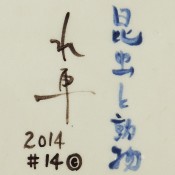 昆虫と動物
2014
#14©